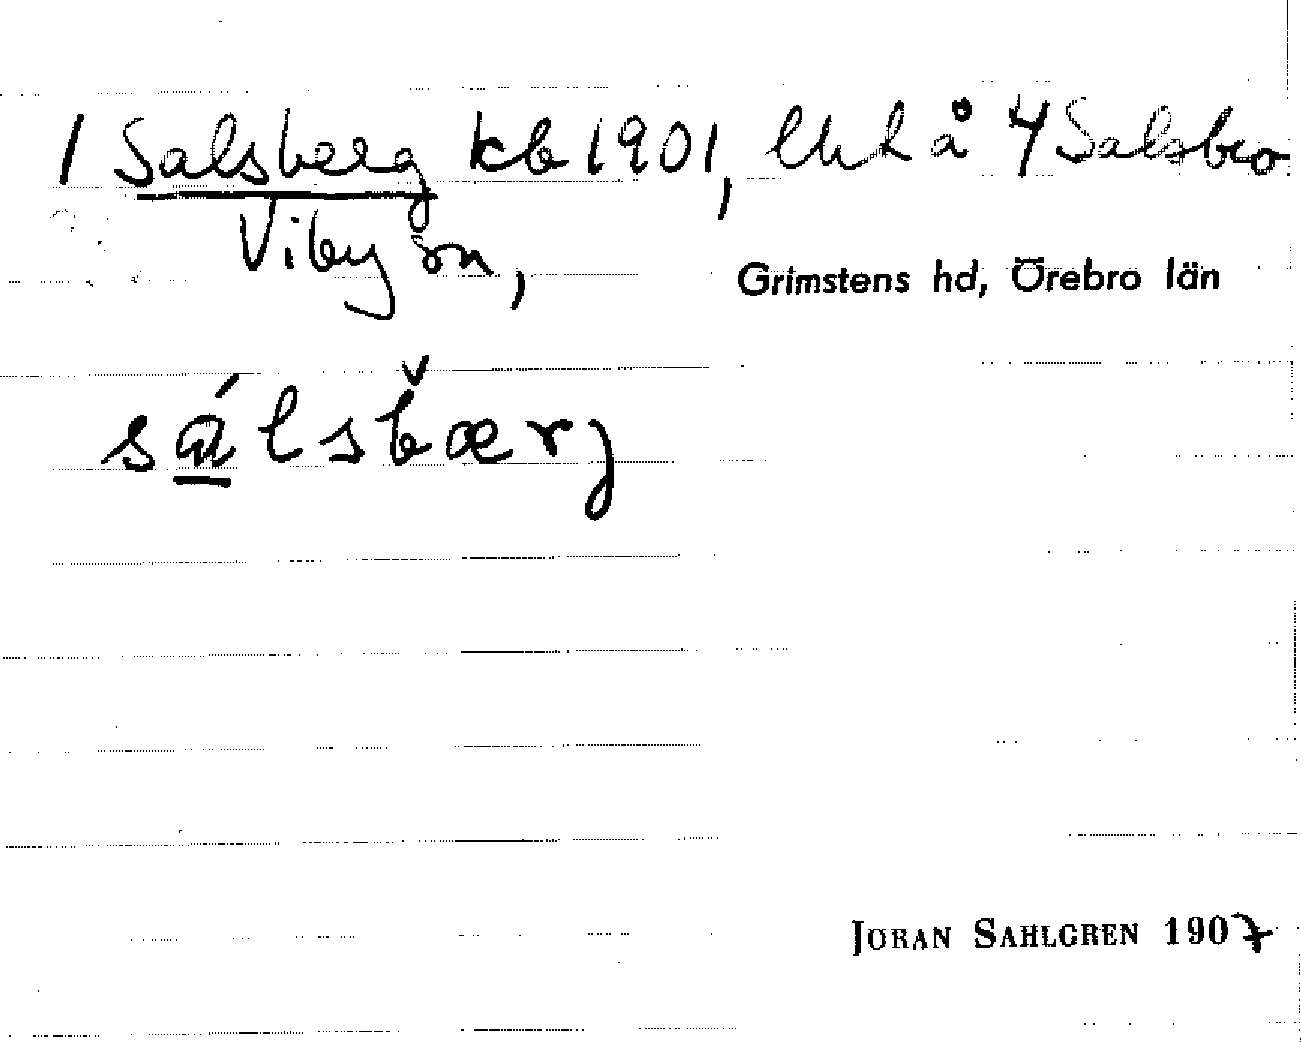 1 Salsberg kb 1901, lht å 4 Salsbro
Viby sn,
Grimstens hd, Örebro län
sálsb̌ærj
JÖRAN SAHLGREN 1907